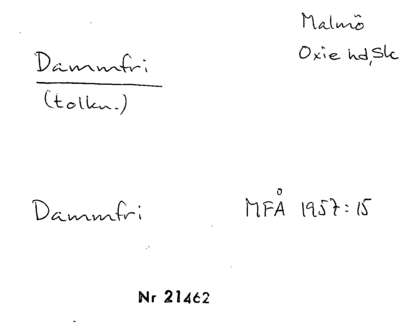 Malmö
Oxie hd, Sk
Dammfri
(tolkn.)
Dammfri MFÅ 1957:15
Nr 21462